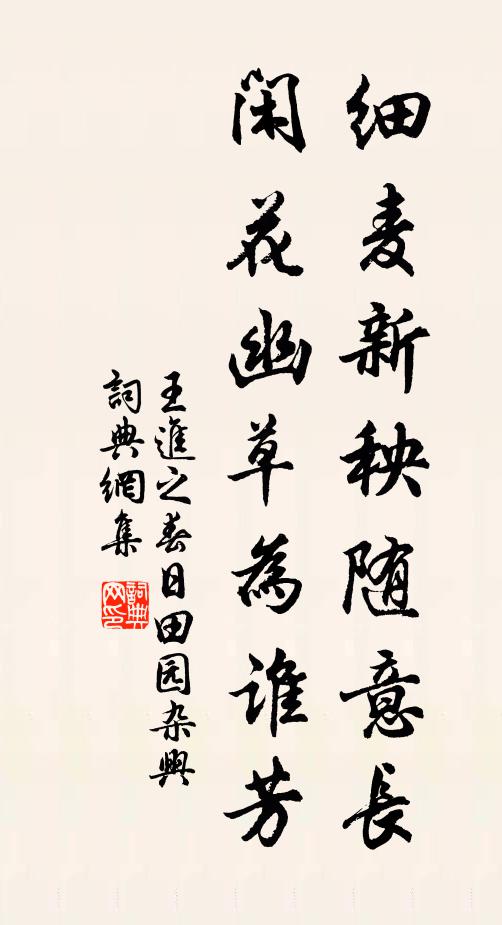 细麦新秧随意長
闲花幽草為谁芳
王進之春日田园杂興
詞典網集
詞典网印